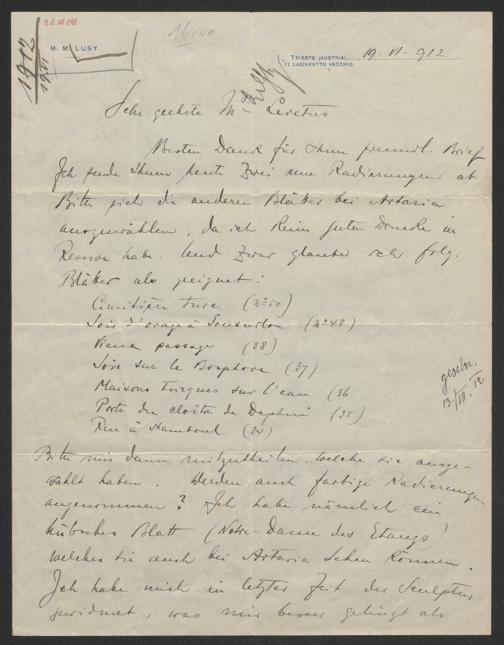 Wiso
M. M. LUSY
TRIESTE (AUSTRIA)
11 LAZZARETTO VECCHIO
19. VI. 912
1912
Sehr geehrte Ms Levetus
Besten Dank für Ihren freundl. Brief
Ich sende Ihnen heute zwei neue Radierungen ab
Bitte sich die anderen Blätter bei Artaria
auszuwählen, da ich keine guten Drucke in
Reserve habe. Und zwar glaube ich folg.
Blätter als geignet:
Cimitière turc (No 50)
Soir d'orage à (No 48)
Vieux passage (38)
Soir sur le Bosphore (37)
Maisons turques sur l'eau (36
Porte du cloître de Daphni (35)
Rue à Stamboul (34)
13./III. 12
Bitte mir dann mitzutheilen welche sie ausge-
wählt haben. Werden auch farbige Radierungen
angenommen? Ich habe nämlich ein
hübsches Blatt (Notre-Dame des Etangs)
welches sie auch bei Artaria sehen können.
Ich habe mich in letzter Zeit der Sculptur
gewidmet, was mir besser gelingt als